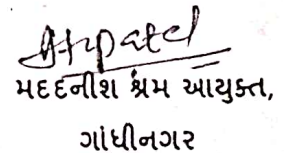 મદદનીશ શ્રમ આયુક્ત,
ગાંધીનગર